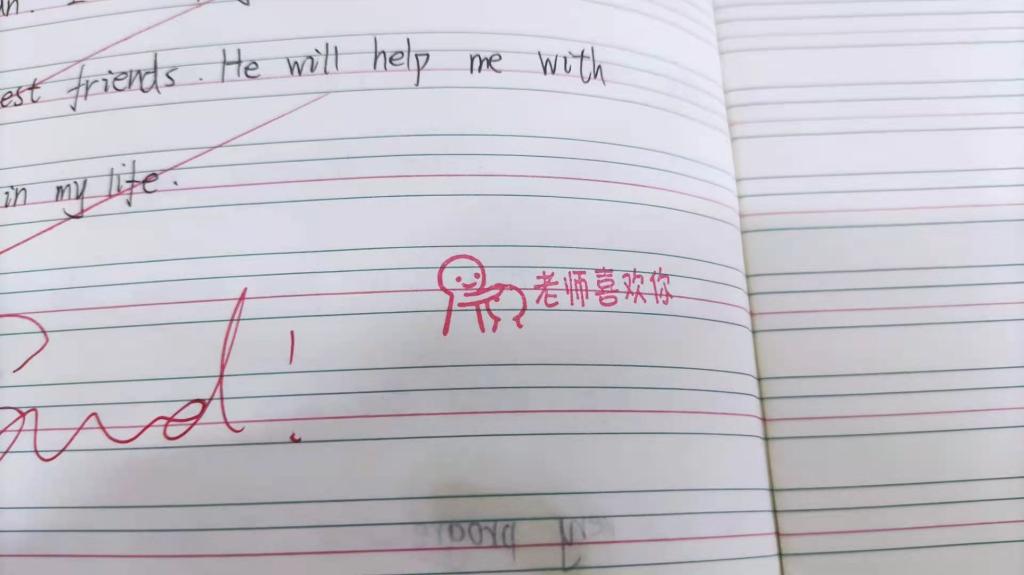 est friends. He will help me with
in my life.
老师喜欢你
Good!